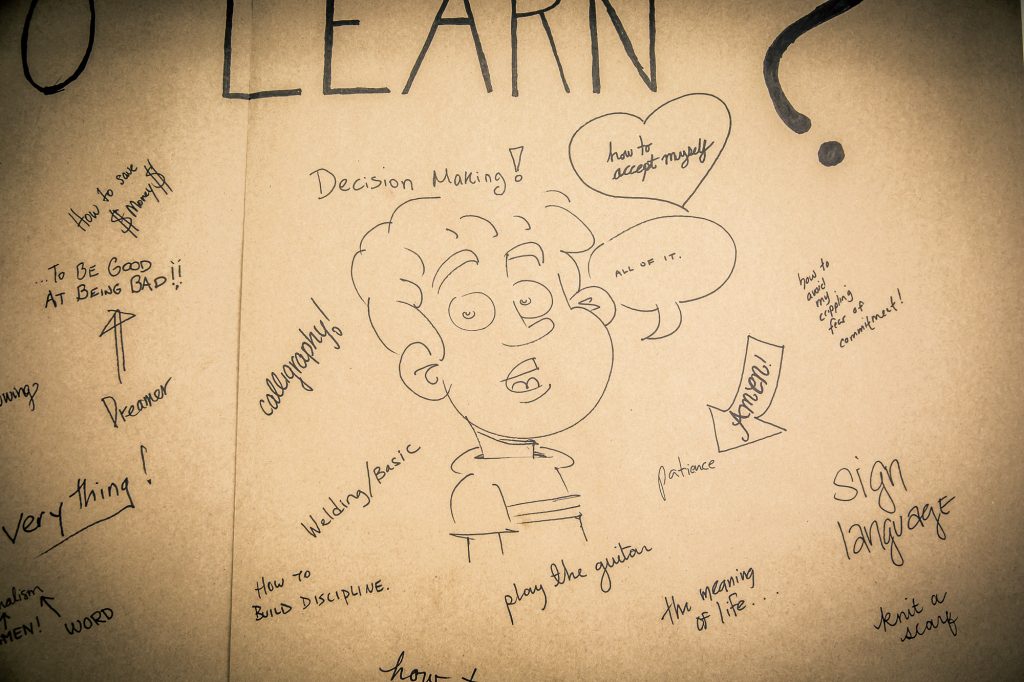 O LEARN?
Decision Making!
how to
accept myself
How to save
$Money$
...To BE GOOD
AT BEING BAD!!
ALL OF IT.
how to
avoid
my
crippling
fear of
commitment!
calligraphy!
Dreamer
AMEN!
Welding/Basic
patience
very thing!
sign
language
HOW TO
BUILD DISCIPLINE.
play the guitar
the meaning
of life....
knit a
scarf
WORD
how